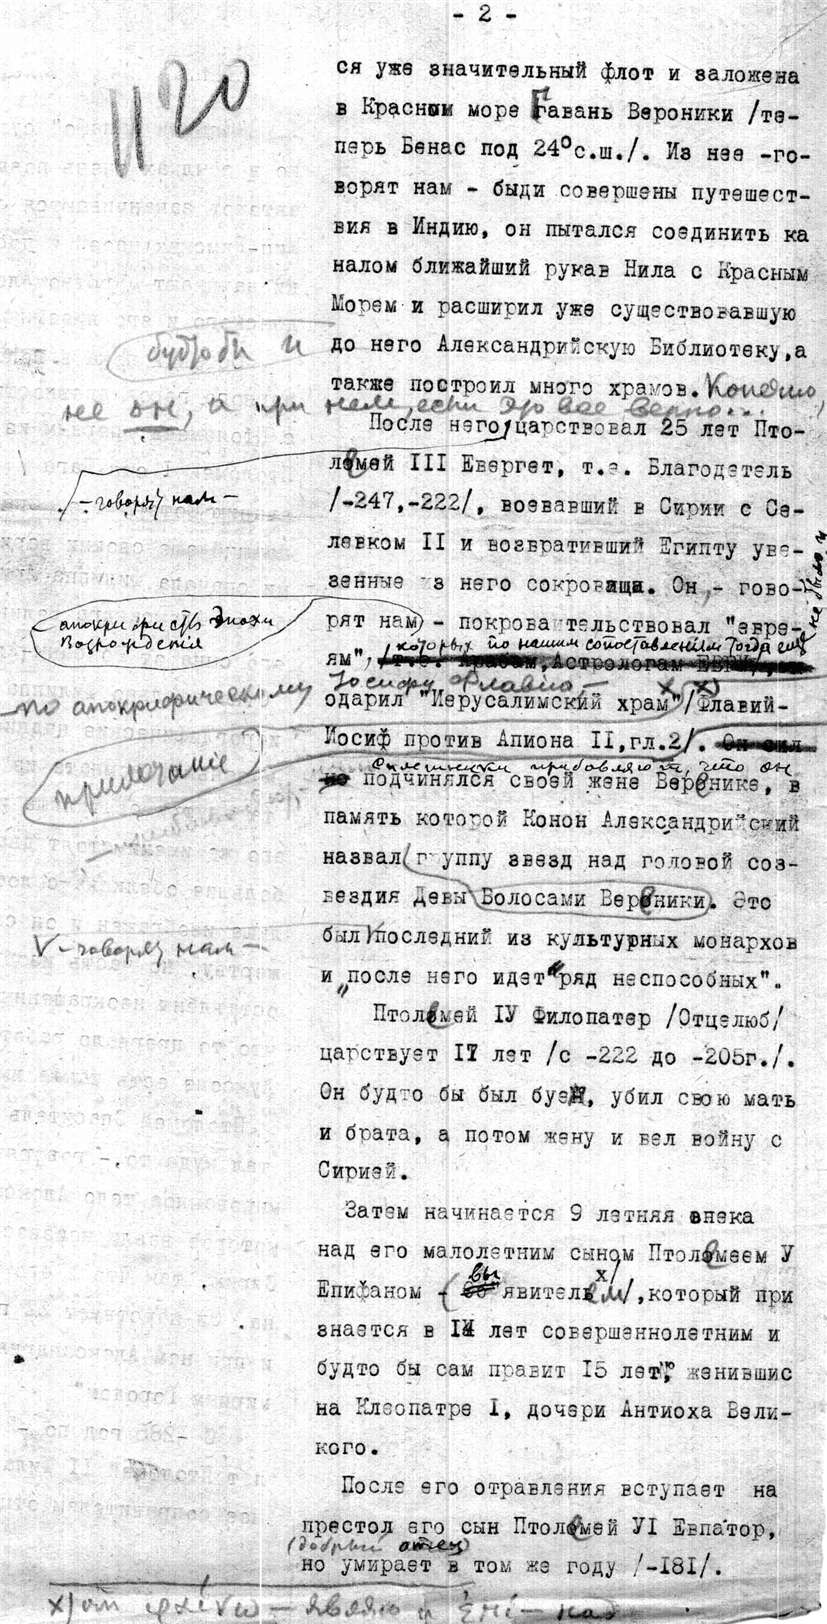 - 2 -
1120
ся уже значительный флот и заложена
в Красном море Гавань Вероники /те-
перь Бенас под 24°с.ш./. Из нее -го-
ворят нам - быди совершены путешест-
вия в Индию, он пытался соединить ка
налом ближайший рукав Нила с Красным
Морем и расширил уже существовавшую
будто бы и
до него Александрийскую Библиотеку,а
также построил много храмов. Конечно,
не он, а при нем, если это все верно...
После него, царствовал 25 лет Пто-
лемей III Евергет, т.е. Благодетель
- говорят нам -
/-247,-222/, воевавший в Сирии с Се-
левком II и возвративший Египту уве-
зенные из него сокровища. Он,- гово-
не было и
апокрифисты эпохи
Возрождения
рят нам - покровительствовал "евре-
которых по нашим сопоставлениям тогда еще
ям", т.е. Арабам,Астрологам
по апокрифическому Иосифу Флавию, -
одарил "Иерусалимский храм" х) /Флавий-
Иосиф против Апиона II,гл.2/. Он сил
примечание
прибавляют, что он
но подчинялся своей жене Веренике, в
память которой Конон Александрийский
назвал группу звезд над головой соз-
вездия Девы Волосами Вереники. Это
V - говорят нам -
был последний из культурных монархов
и "после него идет "ряд неспособных".
Птолемей IУ Филопатер /Отцелюб/
царствует 17 лет /с -222 до -205г./.
Он будто бы был буен, убил свою мать
и брата, а потом жену и вел войну с
Сирией.
Затем начинается 9 летняя опека
над его малолетним сыном Птолемеем У
вы х/
Епифаном - (явителем/,который при
знается в 14 лет совершеннолетним и
будто бы сам правит 15 лет, женившис
на Клеопатре I, дочери Антиоха Вели-
кого.
После его отравления вступает на
престол его сын Птолемей УI Евпатор,
(добрый отец)
но умирает в том же году /-181/.
х) от φαίνω - являю и ἐπί - над